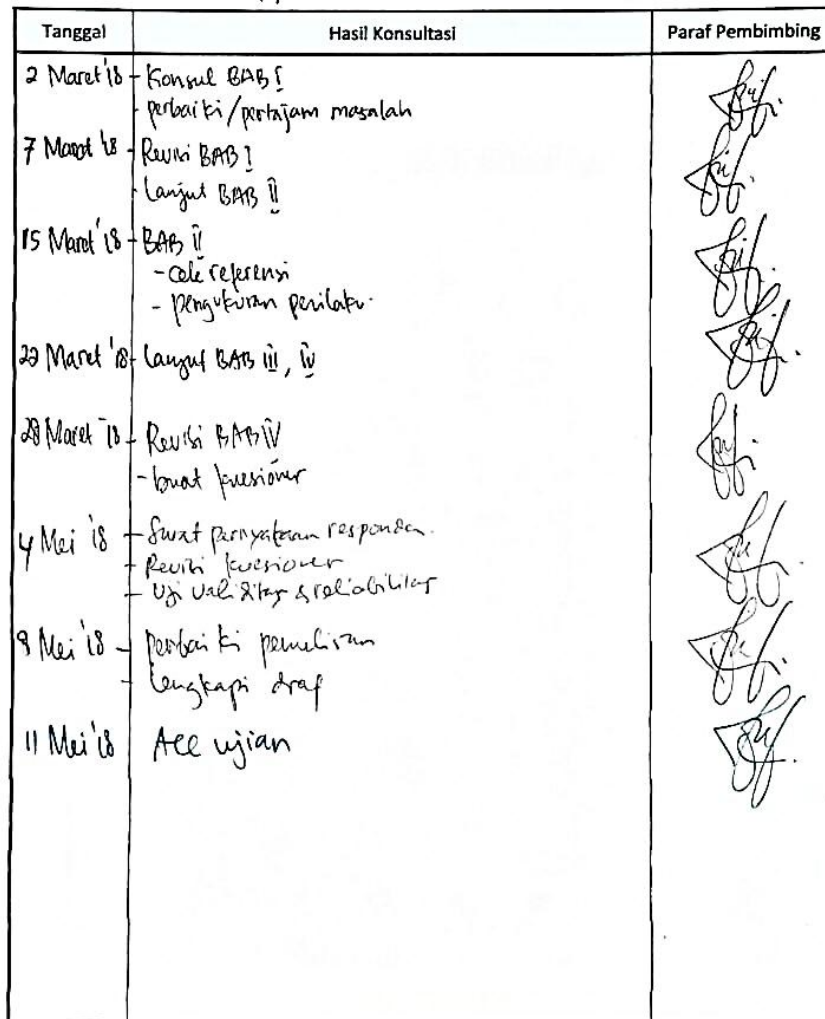 Tanggal Hasil Konsultasi Paraf Pembimbing
2 Maret '18 - Konsul BAB I
- perbaiki/pertajam masalah
7 Maret '18 - Revisi BAB I
- Lanjut BAB II
15 Maret '18 - BAB II
- cek referensi
- pengukuran perilaku.
22 Maret '18 - Lanjut BAB III, IV
28 Maret '18 - Revisi BAB IV
- buat kuesioner
4 Mei '18 - Surat pernyataan responden.
- Revisi kuesioner
- Uji validitas & reliabilitas
9 Mei '18 - perbaiki penulisan
- lengkapi draf
11 Mei '18 Acc ujian